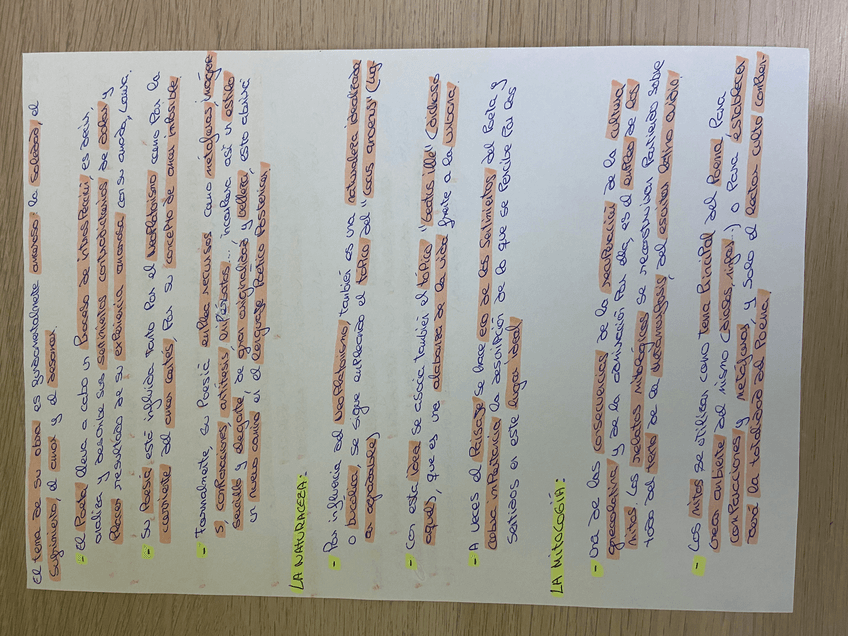 El tema de su obra es fundamentalmente amoroso: la soledad, el
sufrimiento, el amor y el desamor.
- El Poeta lleva a cabo un proceso de introspección, es decir,
analiza y describe sus sentimientos contradictorios de dolor y
placer resultado de su experiencia amorosa con su amada, Laura.
- Su Poesía está influida tanto por el neoplatonismo como por la
corriente del amor cortés, por su concepto de amor imposible.
- Formalmente su Poesía emplea recursos como metáforas, imágene
s, contradicciones, antítesis, hipérbatos... incorpora así un estilo
sencillo y elegante, de gran originalidad y belleza, esto abrirá
un nuevo camino en el lenguaje Poético Posterior.
LA NATURALEZA:
- Por influencia del neoplatonismo, también es una naturaleza idealizada
o bucólica, se sigue empleando el tópico del "locus amoenus" (lug
ar agradable)
- Con esta idea se asocia también el tópico "beatus ille" (dichoso
aquel), que es una alabanza de la vida frente a la urbana.
- A veces el Paisaje se hace eco de los sentimientos del Poeta y
cobra importancia la descripción de lo que se Percibe Por los
sentidos en este lugar ideal.
LA MITOLOGÍA:
- Una de las consecuencias de la recuperación de la cultura
grecolatina y de la admiración por ella, es el empleo de los
mitos. Los relatos mitológicos se reconstruirán Partiendo sobre
todo del texto de la metamorfosis, del escritor latino Ovidio.
- Los mitos se utilizan como tema Principal del Poema, Para
crear ambiente del mismo (diosas, ninfas...) o Para establecer
comparaciones y metáforas, y solo el lector culto compren-
derá la totalidad del Poema.